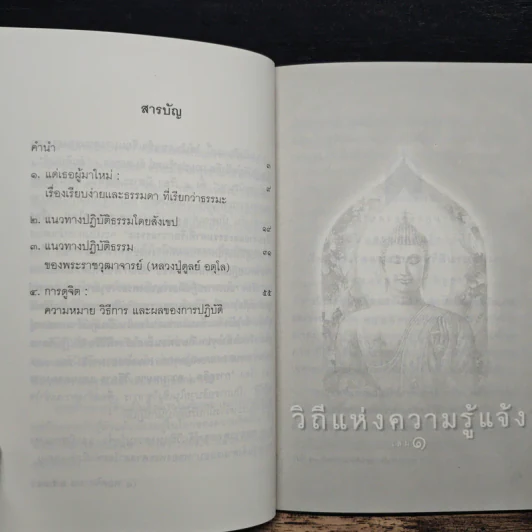 สารบัญ
คำนำ
๑. แด่เธอผู้มาใหม่ : ๙
เรื่องเรียบง่ายและธรรมดา ที่เรียกว่าธรรมะ
๒. แนวทางปฏิบัติธรรมโดยสังเขป ๑๙
๓. แนวทางปฏิบัติธรรม ๓๑
ของพระราชวุฒาจารย์ (หลวงปู่ดูลย์ อตุโล)
๔. การดูจิต : ๕๕
ความหมาย วิธีการ และผลของการปฏิบัติ
วิถีแห่งความรู้แจ้ง
เล่ม ๑